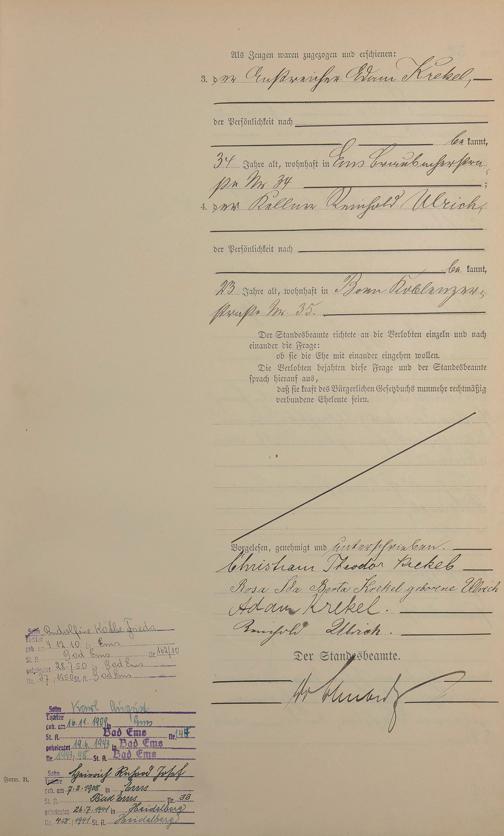 Als Zeugen waren zugezogen und erschienen:
3. der Anstreicher Adam Krekel,
der Persönlichkeit nach
be kannt,
34 Jahre alt, wohnhaft in Ems Braubacherstra-
ße Nr. 34 ;
4. der Kellner Reinhold Ulrich,
der Persönlichkeit nach
be kannt,
23 Jahre alt, wohnhaft in Bonn Koblenzer-
straße Nr. 35.
Der Standesbeamte richtete an die Verlobten einzeln und nach
einander die Frage:
ob sie die Ehe mit einander eingehen wollen.
Die Verlobten bejahten diese Frage und der Standesbeamte
sprach hierauf aus,
daß sie kraft des Bürgerlichen Gesetzbuchs nunmehr rechtmäßig
verbundene Eheleute seien.
Vorgelesen, genehmigt und unterschrieben.
Christian Theodor Krekel
Rosa Ida Berta Krekel geborene Ulrich
Adam Krekel.
Reinhold Ulrich.
Der Standesbeamte.
Käthe Frieda
geb. am 9.12.10 in Ems
St. A. Bad Ems Nr. 162/10
geheiratet 28.7.50 in Bad Ems
Nr. St. A. Bad Ems
Sohn Karl August
Tochter
geb. am 16.11.1908 in Ems
St. A. Bad Ems Nr.
geheiratet 1943 in Bad Ems
Nr. St. A. Bad Ems
Sohn Heinrich Richard Josef
Tochter
geb. am 7.2.1908 in Ems
St. A. Bad Ems Nr. 33
geheiratet 26.7.1941 in Heidelberg
Nr. 1941 St. A. Heidelberg
Form. B.